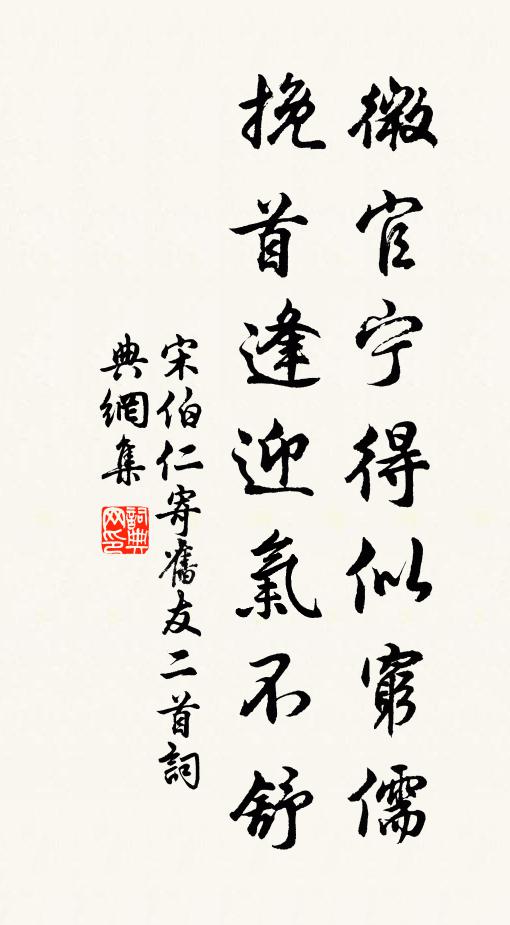 微官宁得似窮儒
挽首逢迎氣不舒
宋伯仁寄舊友二首詞
典網集
詞典
网印